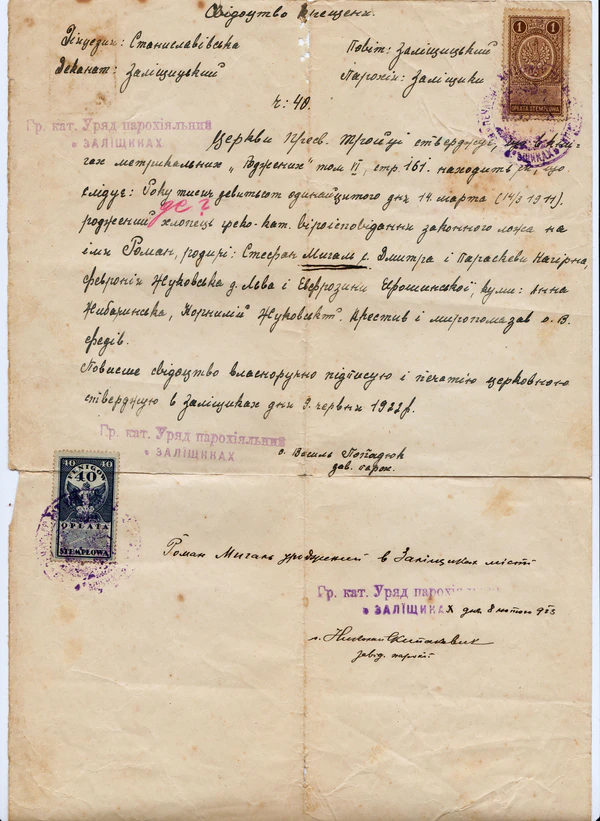 Свідоцтво Хрещеня.
Діецезия: Станиславівська
Повіт: Заліщицький
1 1
ОПŁАТА STEMPLOWA
Деканат: Заліщицький
Парохія: Заліщики
ч: 48.
Гр. кат. Уряд парохіяльний
в ЗАЛІЩИКАХ
Церкви Пресв. Тройці стверджує, що в кни-
гах метрикальних „Роджених" том II, стр. 161. находиться, що
слідує: Року тисяч девятьсот одинайцятого дня 14 марта (14/3 1911).
де?
роджений хлопець греко-кат. віроісповіданя законного ложа на
імя Роман, родичі: Стефан Мигаль с. Дмитра і Параскеви Нагірна,
Февронія Жуковська д. Льва і Евфрозини Ярошинської, куми: Анна
Жуковські. Крестив і миропомазав о. В.
Повисше свідоцтво власноручно підписую і печатію церковною
стверджую в Заліщиках дня 9. червня 1922 р.
Гр. кат. Уряд парохіяльний
в ЗАЛІЩИКАХ
о. Василь Попадюк
зав. парох.
40 FENIGÓW 40
40
OPŁATA
STEMPLOWA
Роман Мигаль уроджений в Заліщиках місті
Гр. кат. Уряд парохі
в ЗАЛІЩИКАХ дня 8 лютого 923
завід. парохії